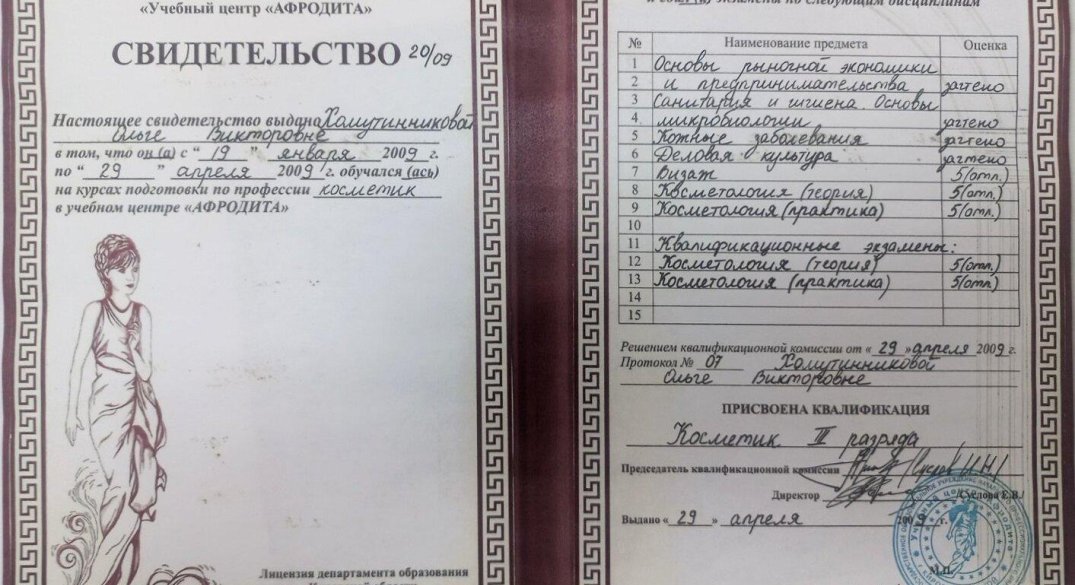 «Учебный центр «АФРОДИТА»
СВИДЕТЕЛЬСТВО 20/09
Настоящее свидетельство выдано Хомутинниковой
Ольге Викторовне
в том, что он (а) с "19" января 2009 г.
по "29" апреля 2009 г. обучался (ась)
на курсах подготовки по профессии косметик
в учебном центре «АФРОДИТА»
Лицензия департамента образования
и сдал (а) экзамены по следующим дисциплинам
№ Наименование предмета Оценка
1 Основы рыночной экономики
2 и предпринимательства зачтено
3 Санитария и гигиена. Основы
4 микробиологии зачтено
5 Кожные заболевания зачтено
6 Деловая культура зачтено
7 Визаж 5(отл.)
8 Косметология (теория) 5(отл.)
9 Косметология (практика) 5(отл.)
10
11 Квалификационные экзамены:
12 Косметология (теория) 5(отл.)
13 Косметология (практика) 5(отл.)
14
15
Решением квалификационной комиссии от «29» апреля 2009 г.
Протокол № 07 Хомутинниковой
Ольге Викторовне
ПРИСВОЕНА КВАЛИФИКАЦИЯ
Косметик III разряда
Председатель квалификационной комиссии
Директор /Суслова Е.В./
Выдано «29» апреля 2009 г.
М.П.